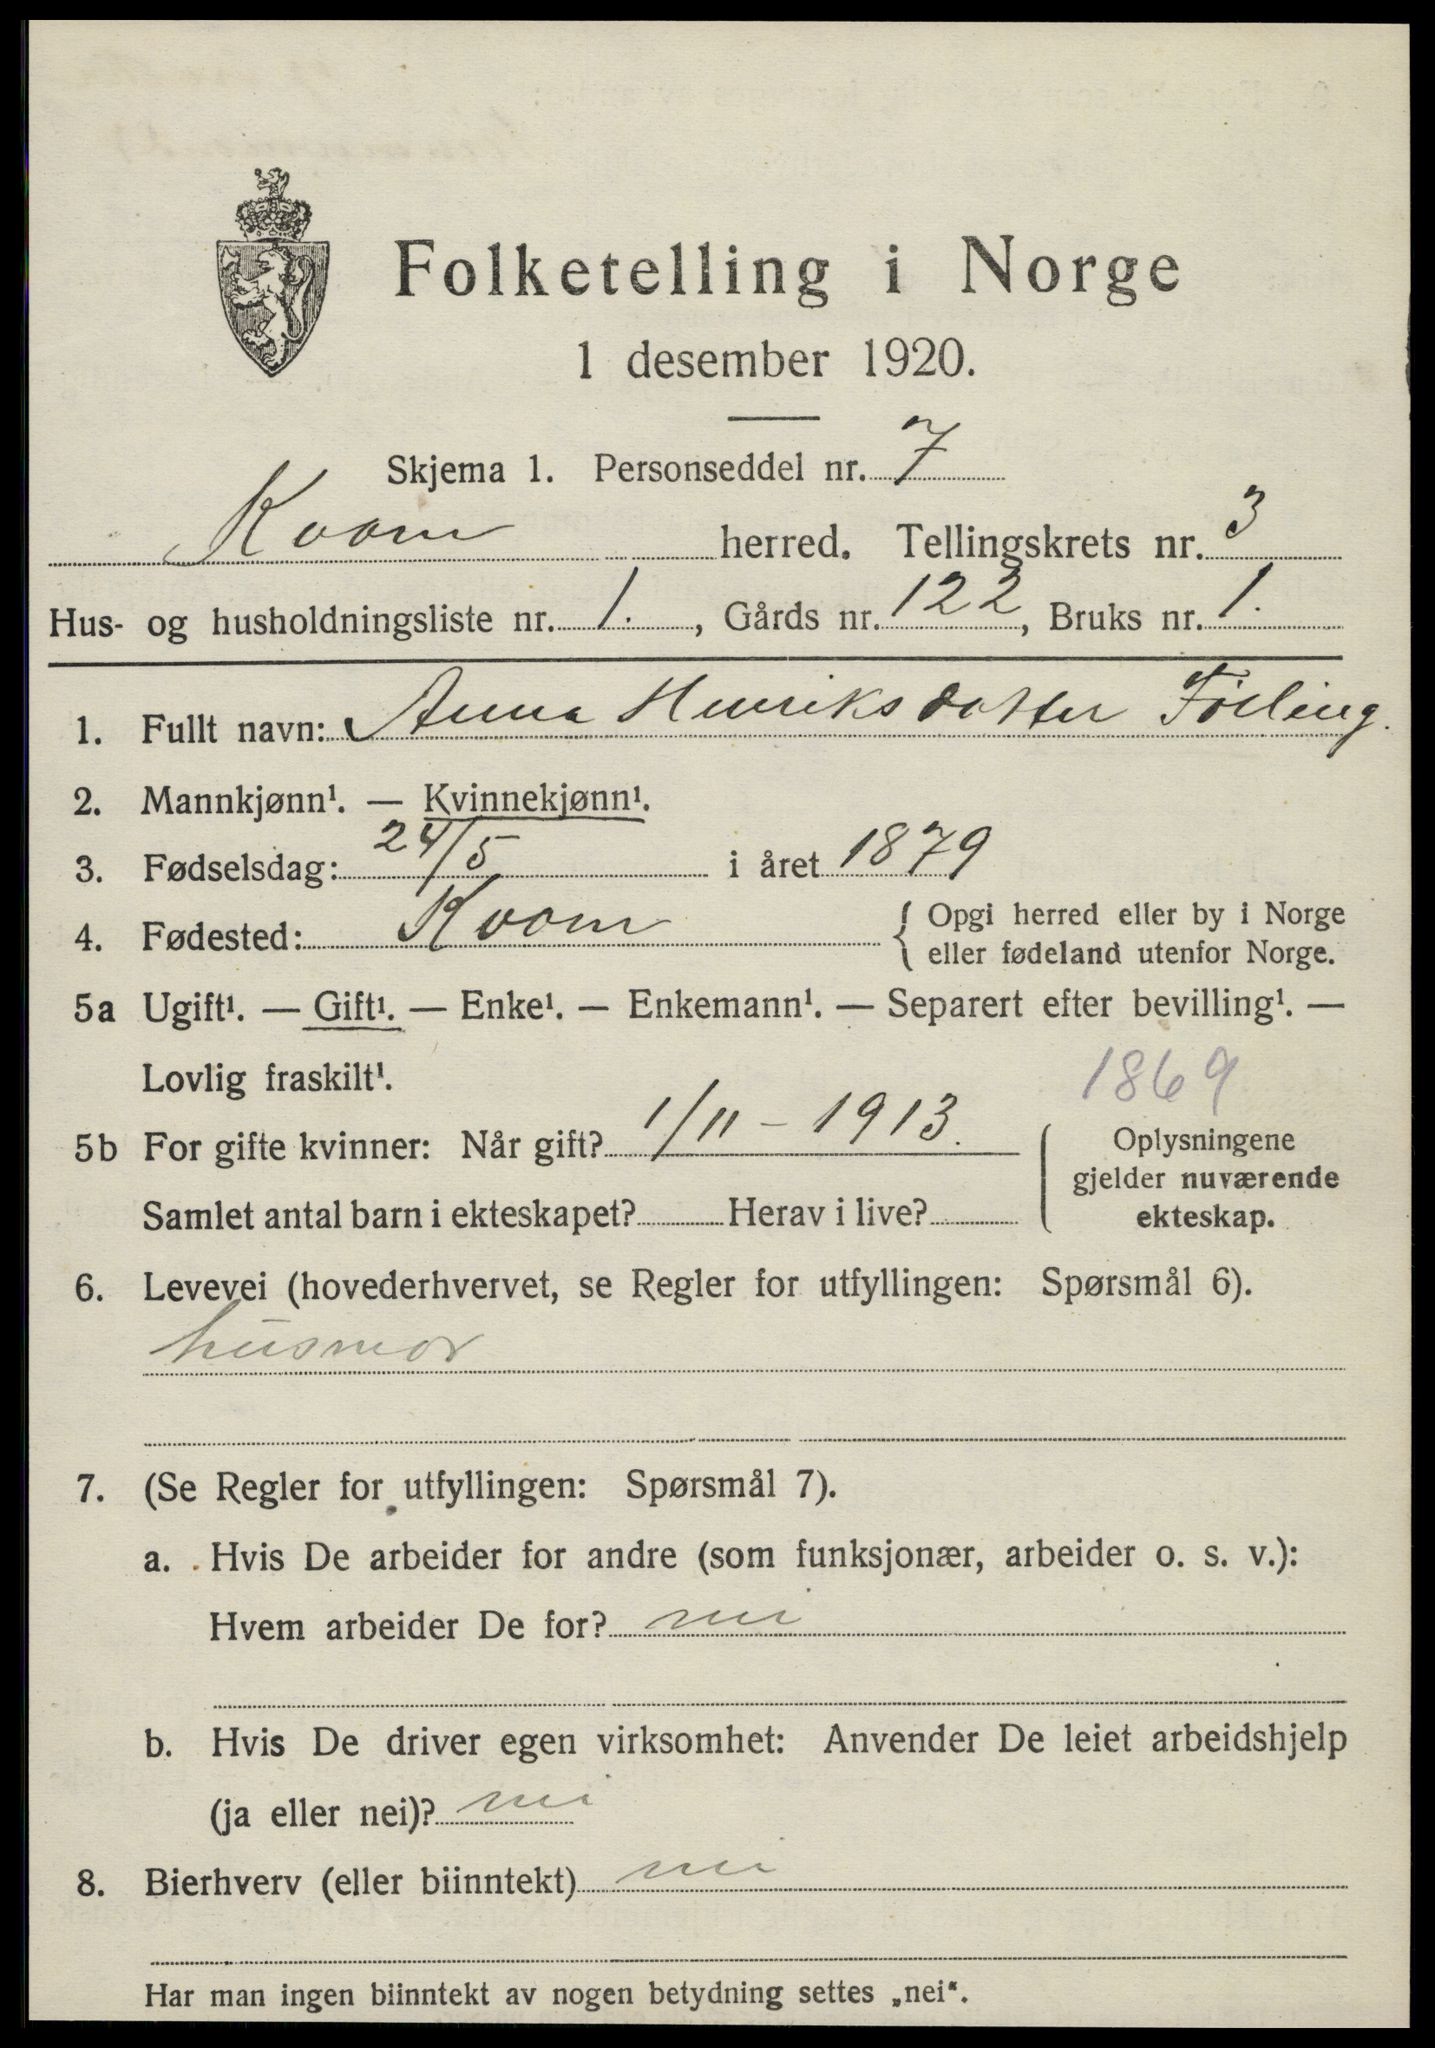 Folketelling i Norge
1 desember 1920.
Skjema 1. Personseddel nr. 7
Kvam herred. Tellingskrets nr. 3
Hus- og husholdningsliste nr. 1. , Gårds nr. 122, Bruks nr. 1.
1. Fullt navn: Anna Henriksdotter Følling.
2. Mannkjønn¹. — Kvinnekjønn¹.
3. Fødselsdag: 24/5 i året 1879
4. Fødested: Kvam { Opgi herred eller by i Norge
eller fødeland utenfor Norge.
5a Ugift¹. — Gift¹. — Enke¹. — Enkemann¹. — Separert efter bevilling¹. —
Lovlig fraskilt¹.
1869
5b For gifte kvinner: Når gift? 1/11 - 1913. { Oplysningene
gjelder nuværende
Samlet antal barn i ekteskapet? Herav i live? ekteskap.
6. Levevei (hovederhvervet, se Regler for utfyllingen: Spørsmål 6).
husmor
7. (Se Regler for utfyllingen: Spørsmål 7).
a. Hvis De arbeider for andre (som funksjonær, arbeider o. s. v.):
Hvem arbeider De for? nei
b. Hvis De driver egen virksomhet: Anvender De leiet arbeidshjelp
(ja eller nei)? nei
8. Bierhverv (eller biinntekt) nei
Har man ingen biinntekt av nogen betydning settes „nei“.